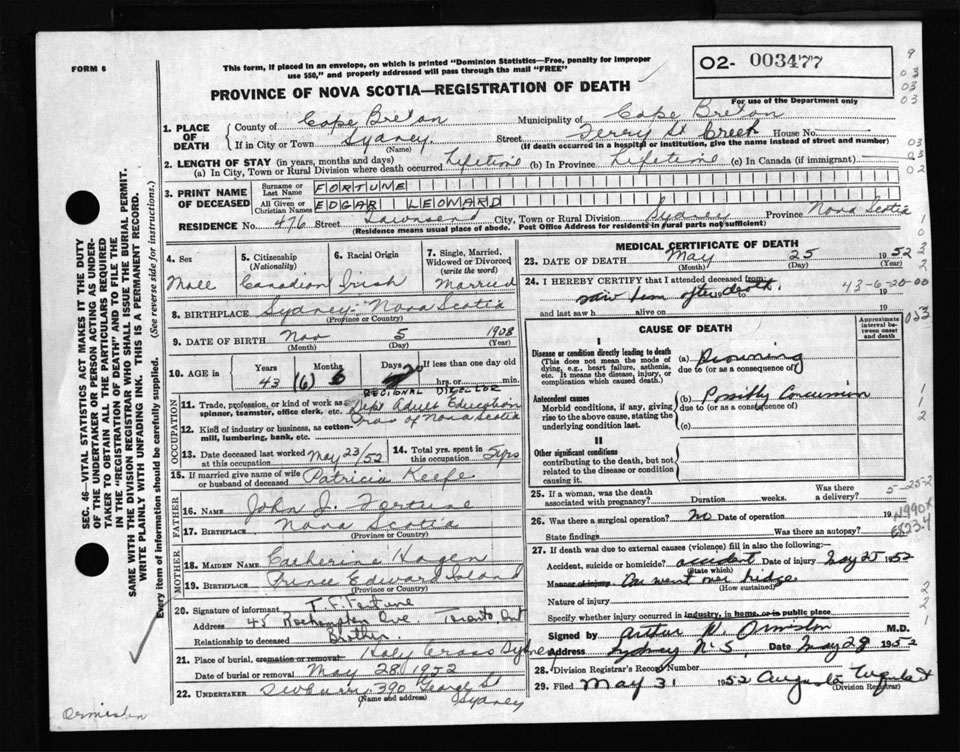 FORM 6
This form, if placed in an envelope, on which is printed "Dominion Statistics—Free, penalty for improper
use $50," and properly addressed will pass through the mail "FREE"
O2- 003477
For use of the Department only
PROVINCE OF NOVA SCOTIA—REGISTRATION OF DEATH
1. PLACE OF DEATH
County of Cape Breton Municipality of Cape Breton
If in City or Town Sydney Street Terry St Creek House No.
(Name) (If death occurred in a hospital or institution, give the name instead of street and number)
2. LENGTH OF STAY (in years, months and days)
(a) In City, Town or Rural Division where death occurred Lifetime (b) In Province Lifetime (c) In Canada (if immigrant)
3. PRINT NAME OF DECEASED
Surname or Last Name FORTUNE
All Given or Christian Names EDGAR LEONARD
RESIDENCE No. 476 Street Townsend City, Town or Rural Division Sydney Province Nova Scotia
(Residence means usual place of abode. Post Office Address for residents in rural parts not sufficient)
4. Sex 5. Citizenship (Nationality) 6. Racial Origin 7. Single, Married, Widowed or Divorced (write the word)
Male Canadian Irish Married
8. BIRTHPLACE Sydney Nova Scotia
(Province or Country)
9. DATE OF BIRTH Nov 5 1908
(Month) (Day) (Year)
10. AGE in Years Months Days If less than one day old
43 (6) hrs. or min.
REGIONAL DIRECTOR
11. Trade, profession, or kind of work as spinner, teamster, office clerk, etc. Dept Adult Education
12. Kind of industry or business, as cotton-mill, lumbering, bank, etc. Prov of Nova Scotia
13. Date deceased last worked at this occupation May 23/52 14. Total yrs. spent in this occupation 5 yrs
OCCUPATION
15. If married give name of wife or husband of deceased Patricia Keefe
FATHER
16. NAME John J. Fortune
17. BIRTHPLACE Nova Scotia
(Province or Country)
MOTHER
18. MAIDEN NAME Catherine Hagen
19. BIRTHPLACE Prince Edward Island
(Province or Country)
20. Signature of informant T. F. Fortune
Address 45 Roehampton Ave Toronto Ont
Relationship to deceased Brother
21. Place of burial, cremation or removal Holy Cross Sydney
Date of burial or removal May 28 1952
22. UNDERTAKER 390 George St
(Name and address) Sydney
MEDICAL CERTIFICATE OF DEATH
23. DATE OF DEATH May 25 1952
(Month) (Day) (Year)
24. I HEREBY CERTIFY that I attended deceased from:
saw him after death to 19
and last saw h alive on 19
43-6-20-00
CAUSE OF DEATH
Approximate interval between onset and death
I
Disease or condition directly leading to death
(This does not mean the mode of dying, e.g., heart failure, asthenia, etc. It means the disease, injury, or complication which caused death.)
(a) Drowning
due to (or as a consequence of)
Antecedent causes
Morbid conditions, if any, giving rise to the above cause, stating the underlying condition last.
(b) Possibly Concussion
due to (or as a consequence of)
(c)
II
Other significant conditions
contributing to the death, but not related to the disease or condition causing it.
25. If a woman, was the death associated with pregnancy? Duration weeks. Was there a delivery?
5-25-2
26. Was there a surgical operation? no Date of operation 19
State findings Was there an autopsy?
N990X
E8234
27. If death was due to external causes (violence) fill in also the following:—
Accident, suicide or homicide? accident Date of injury May 25 1952
(State which)
Manner of injury Car went over bridge
(How sustained)
Nature of injury
Specify whether injury occurred in industry, in home, or in public place
Signed by Arthur W. Ormiston M.D.
Address Sydney N.S. Date May 28 1952
28. Division Registrar's Record Number
29. Filed May 31 1952
(Division Registrar)
SEC. 46—VITAL STATISTICS ACT MAKES IT THE DUTY
OF THE UNDERTAKER OR PERSON ACTING AS UNDER-
TAKER TO OBTAIN ALL THE PARTICULARS REQUIRED
IN THE "REGISTRATION OF DEATH" AND TO FILE THE
SAME WITH THE DIVISION REGISTRAR WHO SHALL ISSUE THE BURIAL PERMIT.
WRITE PLAINLY WITH UNFADING INK. THIS IS A PERMANENT RECORD.
Every item of information should be carefully supplied. (See reverse side for instructions.)
Ormiston